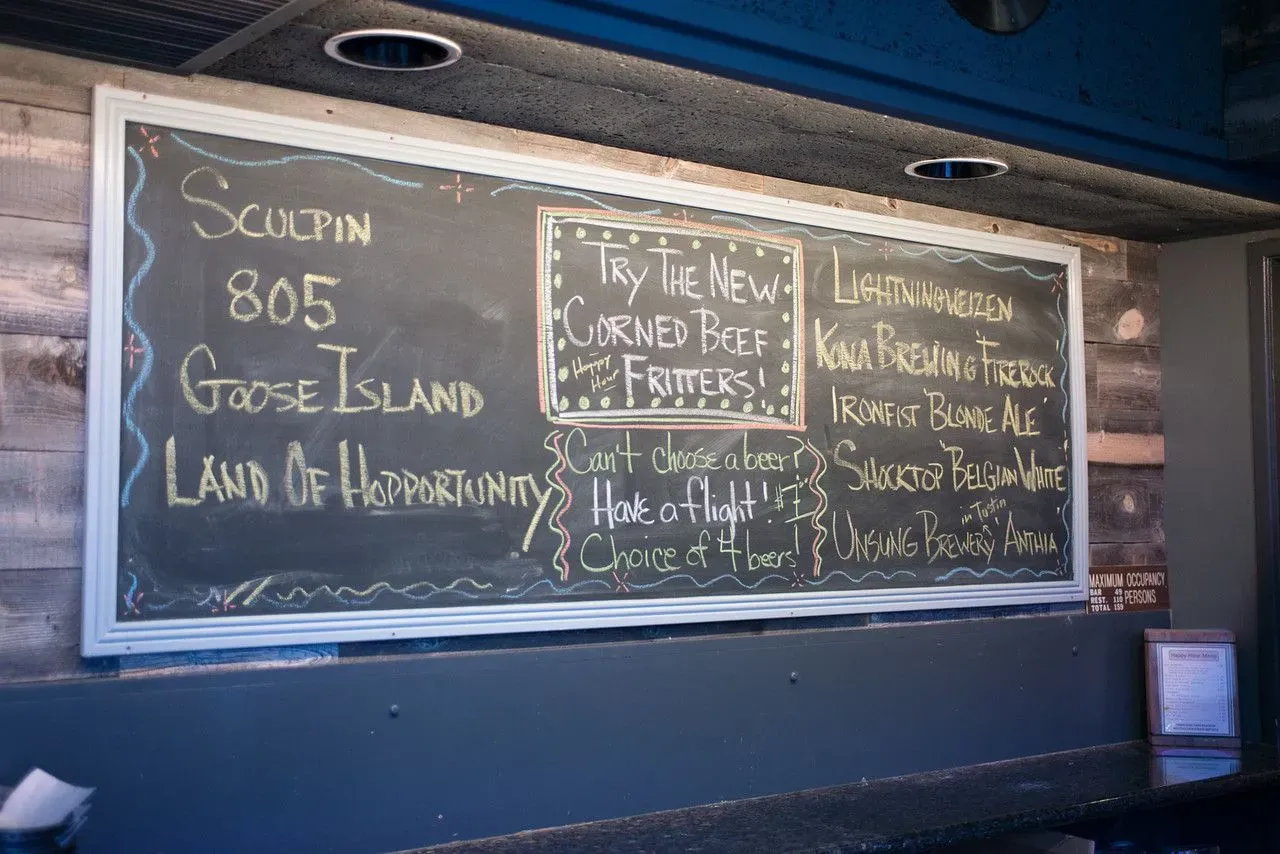 SCULPIN
805
GOOSE ISLAND
LAND OF HOPPORTUNITY
TRY THE NEW
CORNED BEEF
Happy
Hour
FRITTERS!
Can't choose a beer?
Have a flight! $7
Choice of 4 beers!
LIGHTNINGWEIZEN
KONA BREWING FIREROCK
IRONFIST 'BLONDE ALE'
SHOCKTOP 'BELGIAN WHITE'
in Tustin
UNSUNG BREWERY 'ANTHIA'
MAXIMUM OCCUPANCY
BAR 49
REST. 110
PERSONS
TOTAL 159
Happy Hour Menu